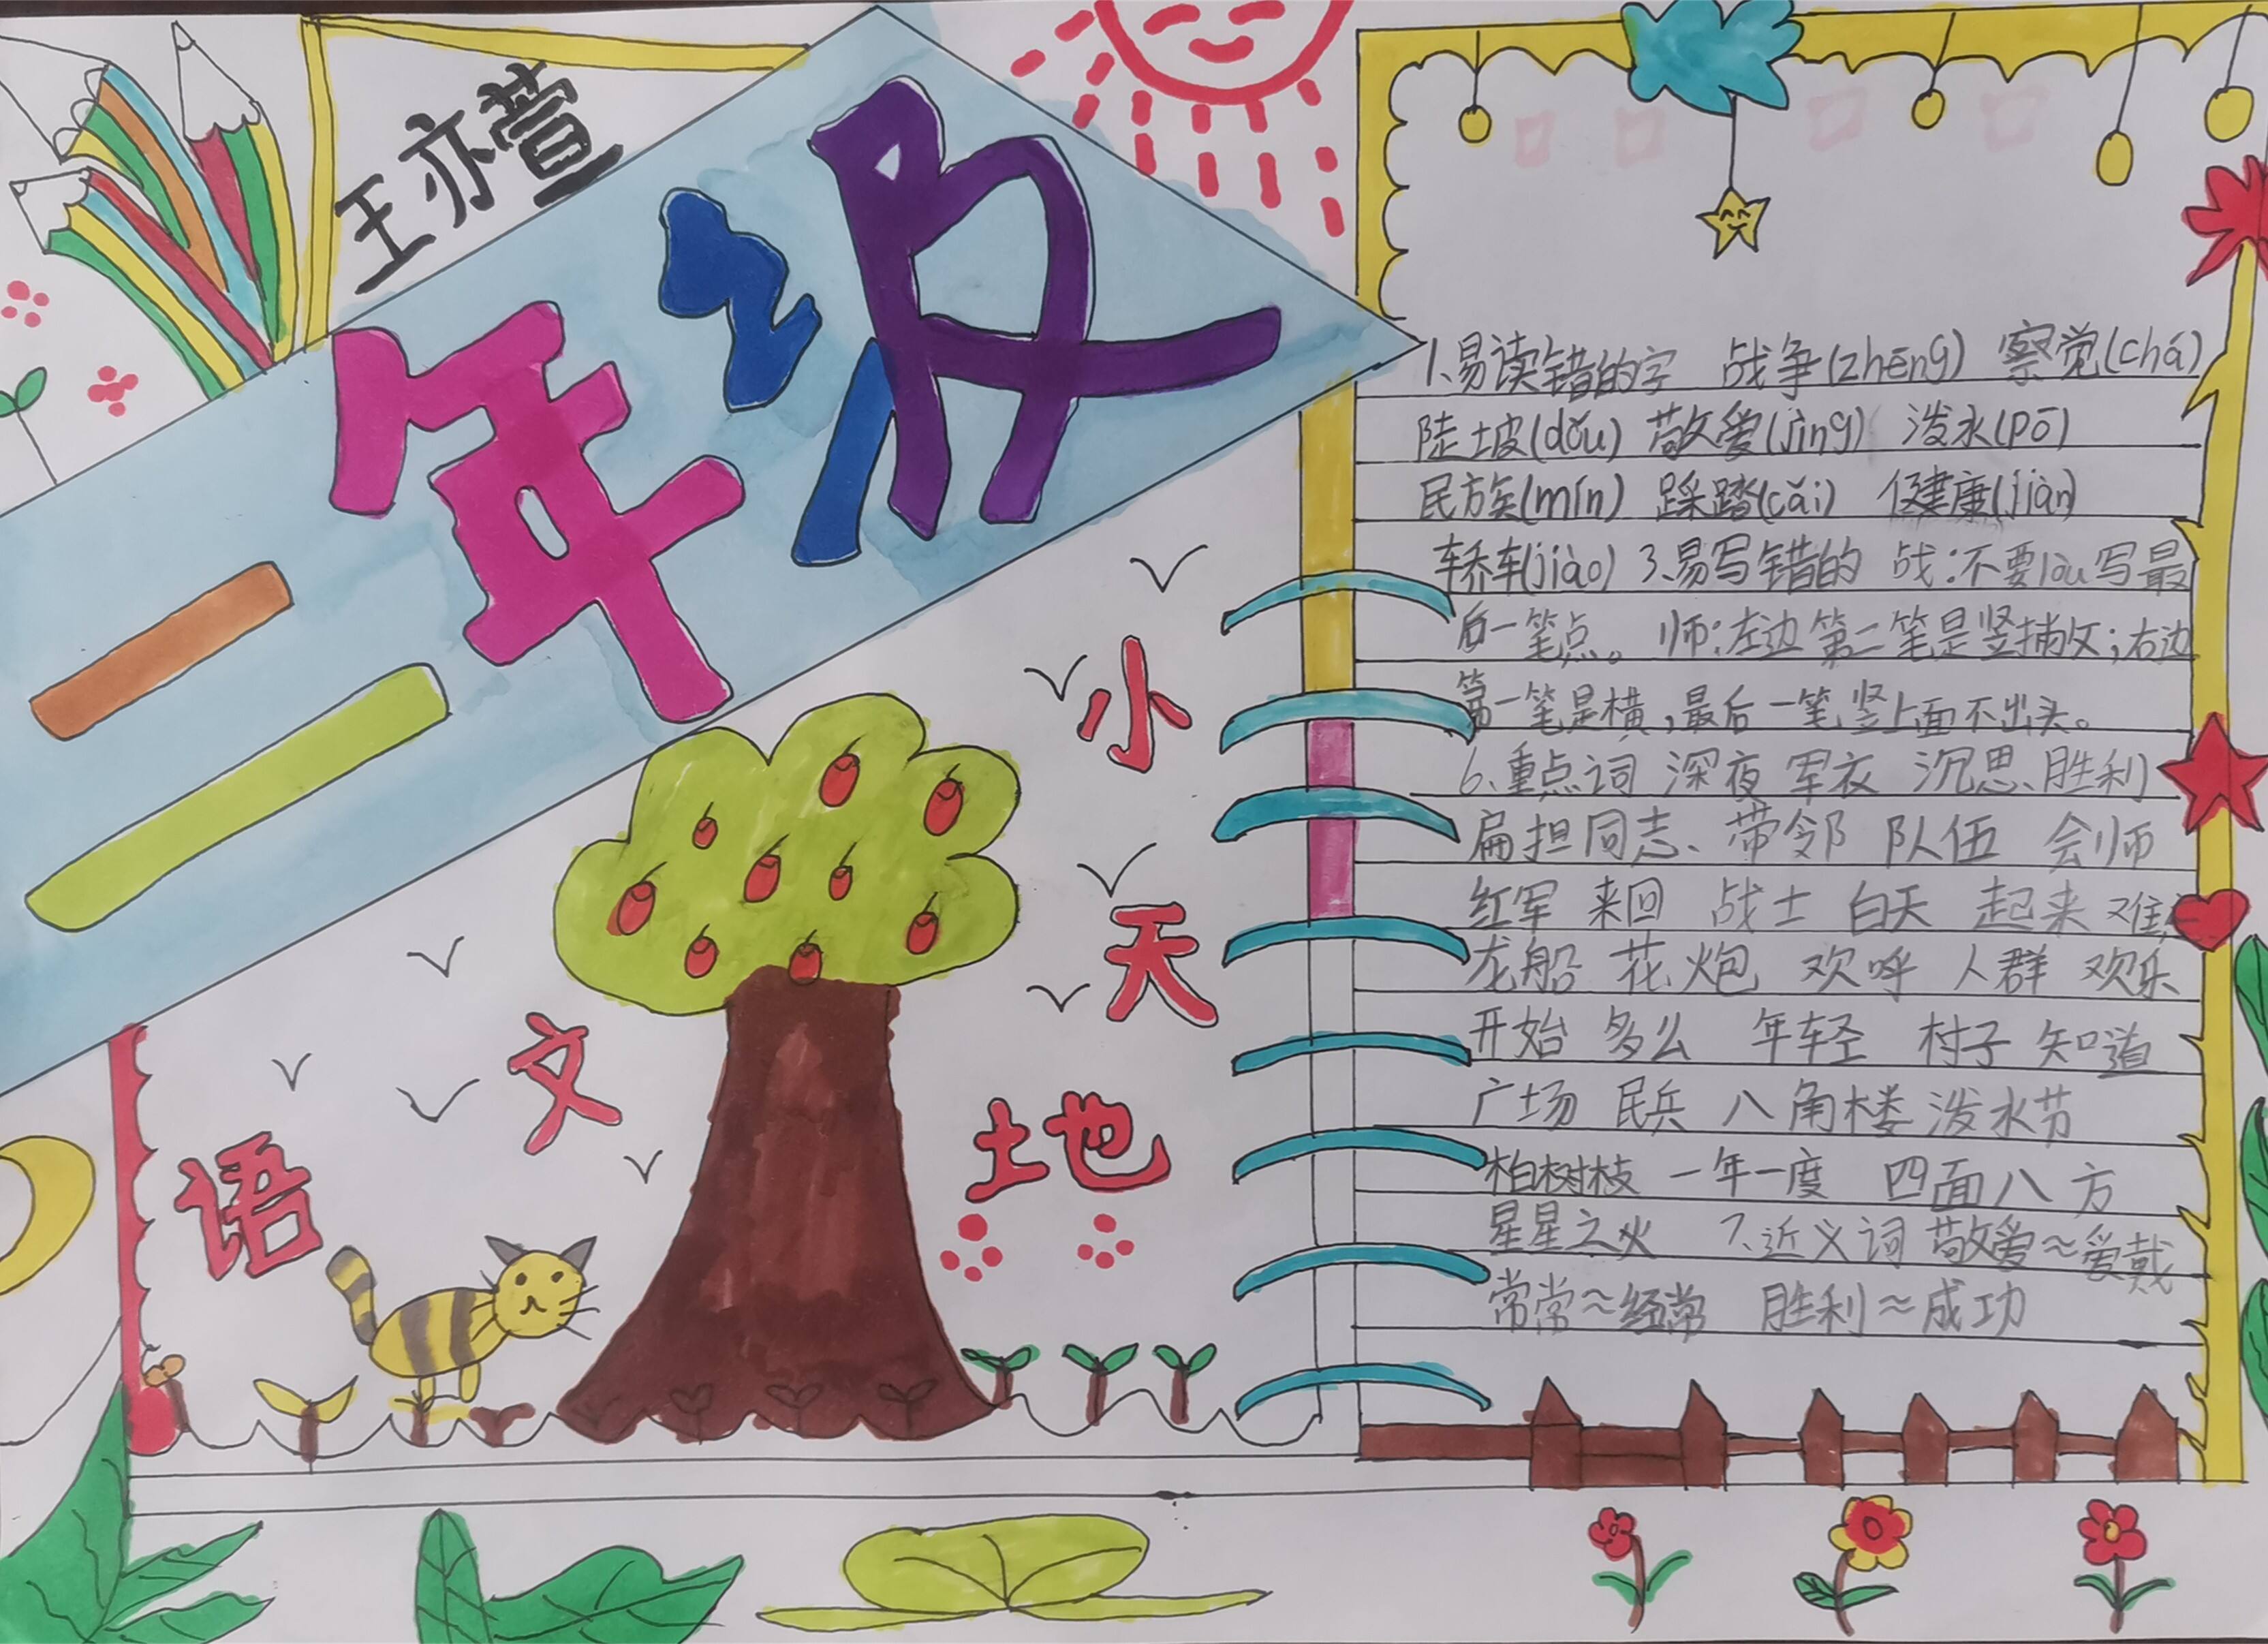 王亦萱
二年级
语文小天地
1、易读错的字 战争(zhēng) 察觉(chá)
陡坡(dǒu) 敬爱(jìng) 泼水(pō)
民族(mín) 踩踏(cǎi) 健康(jiàn)
轿车(jiào) 3、易写错的 战:不要lòu写最
后一笔点。 师:左边第二笔是竖撇;右边
第一笔是横,最后一笔竖上面不出头。
6、重点词 深夜 军衣 沉思、胜利
扁担同志、带邻 队伍 会师
红军 来回 战士 白天 起来 难
龙船 花炮 欢呼 人群 欢乐
开始 多么 年轻 村子 知道
广场 民兵 八角楼 泼水节
柏树枝 一年一度 四面八方
星星之火 7、近义词 敬爱~爱戴
常常≈经常 胜利≈成功